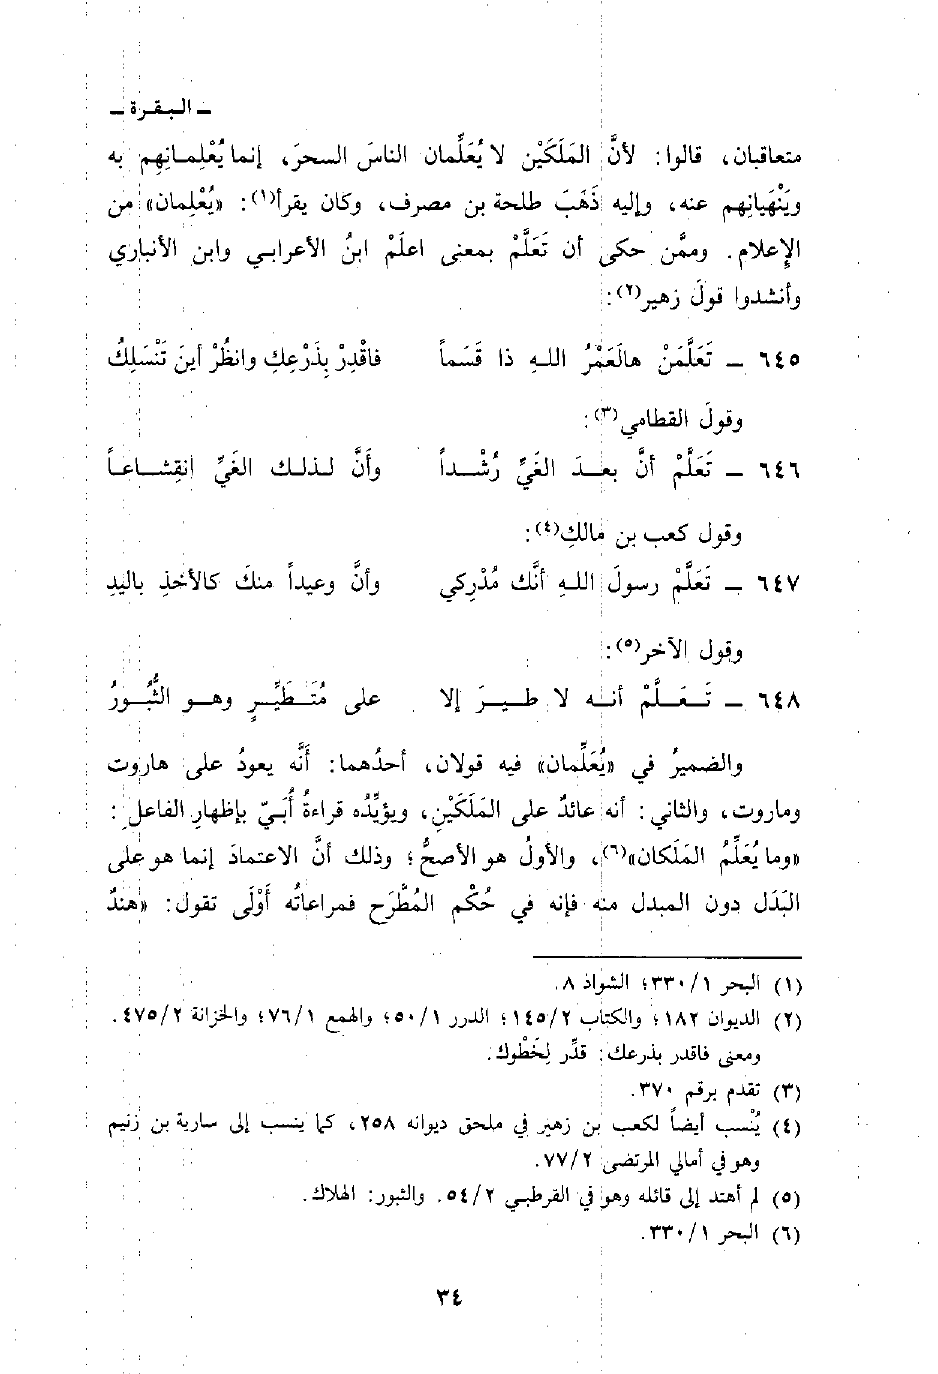 ـ البقرة ـ
متعاقبان، قالوا: لأنَّ المَلَكَيْن لا يُعَلِّمان الناسَ السحرَ، إنما يُعْلِمانِهم به
ويَنْهَيانِهم عنه، وإليه ذَهَبَ طلحة بن مصرف، وكان يقرأ(١): «يُعْلِمان» من
الإِعلام. وممَّن حكى أن تَعَلَّمْ بمعنى اعلَمْ ابنُ الأعرابي وابن الأنباري
وأنشدوا قولَ زهير(٢):
٦٤٥ ـ تَعَلَّمَنْ هالَعَمْرُ اللـهِ ذا قَسَماً فاقْدِرْ بِذَرْعِكِ وانظُرْ أينَ تَنْسَلِكُ
وقولَ القطامي(٣):
٦٤٦ ـ تَعَلَّمْ أنَّ بعـدَ الغَيِّ رُشْـداً وأَنَّ لـذلـك الغَيِّ انقِشـاعـاً
وقول كعب بن مالكِ(٤):
٦٤٧ ـ تَعَلَّمْ رسولَ اللـهِ أنَّك مُدْرِكي وأنَّ وعيداً منكَ كالأخذِ باليدِ
وقول الآخر(٥):
٦٤٨ ـ تَـعَـلَّمْ أنـه لا طـيـرَ إلا على مُتَـطَيِّـرٍ وهـو الثُّبُـورُ
والضميرُ في «يُعَلِّمان» فيه قولان، أحدُهما: أَنَّه يعودُ على هاروت
وماروت، والثاني: أنه عائدٌ على المَلَكَيْنِ، ويؤيِّدُه قراءةُ أُبَيّ بإظهارِ الفاعلِ:
«وما يُعَلِّمُ المَلَكان»(٦)، والأولُ هو الأصحُّ؛ وذلك أنَّ الاعتمادَ إنما هو على
البَدَل دون المبدل منه فإنه في حُكْم المُطَّرَح فمراعاتُه أَوْلَى تقول: «هندٌ
(١) البحر ٣٣٠/١؛ الشواذ ٨.
(٢) الديوان ١٨٢؛ والكتاب ١٤٥/٢؛ الدرر ٥٠/١؛ والهمع ٧٦/١؛ والخزانة ٤٧٥/٢.
ومعنى فاقدر بذرعك: قدِّر لِخَطْوك.
(٣) تقدم برقم ٣٧٠.
(٤) يُنْسب أيضاً لكعب بن زهير في ملحق ديوانه ٢٥٨، كما ينسب إلى سارية بن زنيم
وهو في أمالي المرتضى ٧٧/٢.
(٥) لم أهتد إلى قائله وهو في القرطبي ٥٤/٢. والثبور: الهلاك.
(٦) البحر ٣٣٠/١.
٣٤